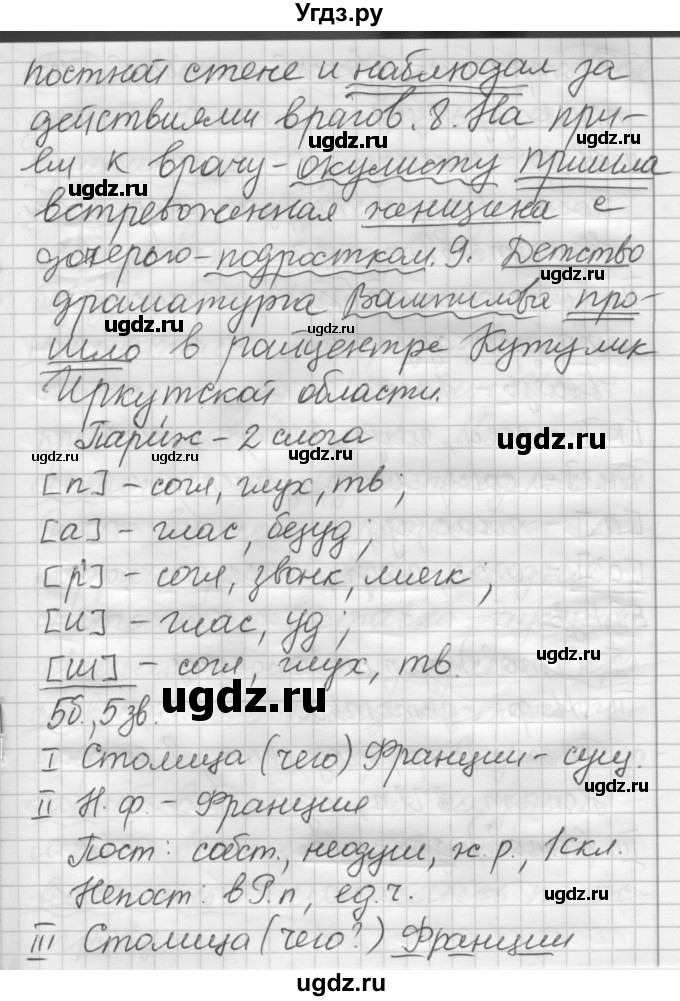 Угдз.ру
постной стене и наблюдал за
действиями врагов. 8. На при-
ugdz.ru
ём к врачу-окулисту пришла
ugdz.ru
ugdz.ru
встревоженная женщина с
дочерью-подростком. 9. Детство
ugdz.ru
драматурга Вампилова про-
ugdz.ru
ugdz.ru
шло в райцентре Кутулик
Иркутской области.
Пари́ж - 2 слога
ugdz.ru
ugdz.ru
ugdz.ru
ugdz.ru
[п] - согл, глух, тв;
[а] - глас, безуд;
ugdz.ru
[р'] - согл, звонк, мягк;
ugdz.ru
[и] - глас, уд;
[ш] - согл, глух, тв.
ugdz.ru
5б., 5 зв.
ugdz.ru
I Столица (чего) Франции - сущ.
ugdz.ru
II Н. ф. - Франция
Пост: собст., неодуш, ж.р., 1скл.
Непост: в Р.п, ед.ч.
ugdz.ru
ugdz.ru
III Столица (чего?) Франции
ugdz.ru